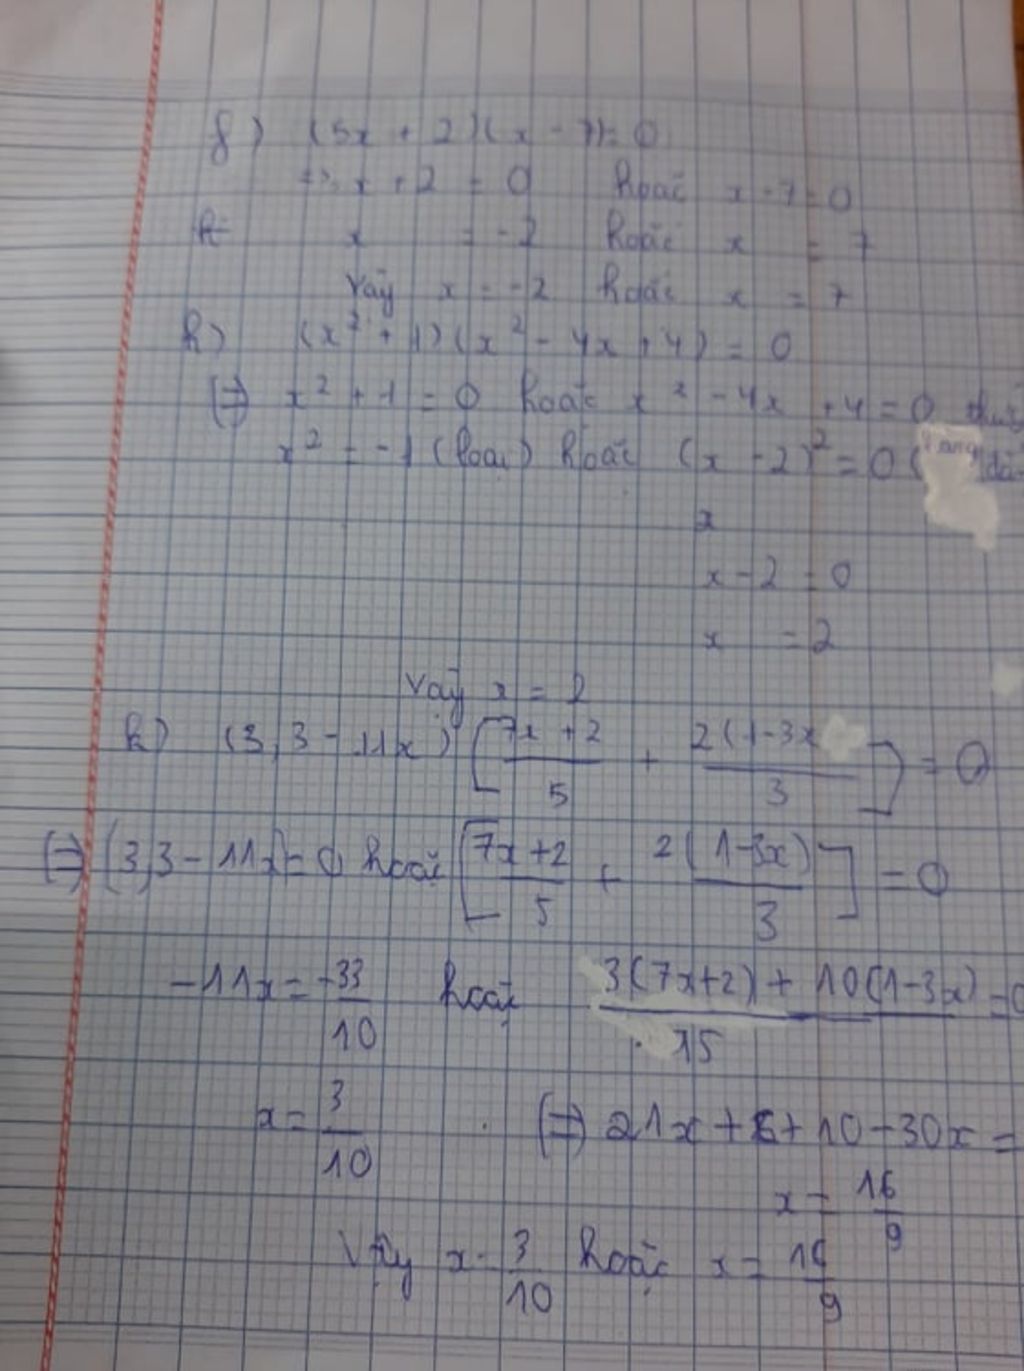 f) (5x + 2)(x - 7) = 0
x + 2 = 0 hoặc x - 7 = 0
x = -2 hoặc x = 7
Vậy x = -2 hoặc x = 7
h) (x² + 1)(x² - 4x + 4) = 0
(=) x² + 1 = 0 hoặc x² - 4x + 4 = 0
x² = -1 (loại) hoặc (x - 2)² = 0 (
x
x - 2 = 0
x = 2
Vậy x = 2
k) (3,3 - 11x) [7x + 2 / 5 + 2(1 - 3x / 3] = 0
(=) (3,3 - 11x) = 0 hoặc [7x + 2 / 5 + 2(1 - 3x) / 3] = 0
-11x = -33/10 hoặc 3(7x+2) + 10(1-3x) / 15 = 0
x = 3/10 (=) 21x + 6 + 10 - 30x =
x = 16/9
Vậy x = 3/10 hoặc x = 16/9